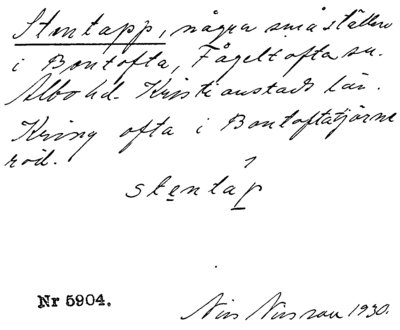 Stentapp, några små ställen
i Bontofta, Fågeltofta sn.
Albo hd. Kristianstads län.
Kring ofta i Bontoftatjärne
röd.
stentáp
Nr 5904.
Nils Nilsson 1930.